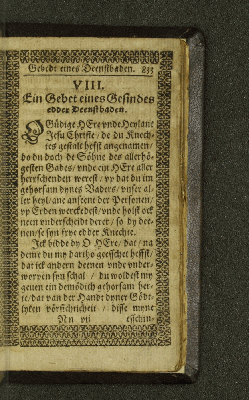 Gebedt eines Deenstbaden. 833
VIII.
Ein Gebet eines Gesindes
edder Deenstbaden.
Güdige HEre vnde Heylant
Jesu Christe / de du Knech-
tes gestalt hefst angenamen /
do du doch de Söhne des allerhö-
gesten Gades / vnde ein HEre aller
herrschenden werest / vp dat du im
gehorsam dynes Vaders / vnser al-
ler heyl / ane anseent der Personen /
vp Erden werckedest / vnde holst ock
neen vnderscheidt derer / so dy dee-
nen / se syn frye edder Knechte.
Ick bidde dy O HEre / dat / na
deme du my dartho geesschet hefst /
dat ick andern deenen vnde vnder-
worpen syn schal / du woldest my
geuen ein demödich gehorsam her-
te / dat van der Handt dyner Göde-
lyken / disse myne
Nn vij esschin-